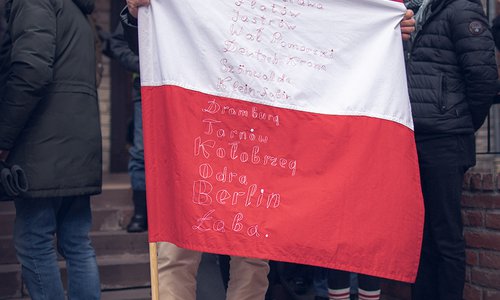 Flatów
Jastrów
Wał Pomorski
Deutsch Krone
Schönwalde
Dramburg
Tarnów
Kołobrzeg
Odra
Berlin
Łaba.